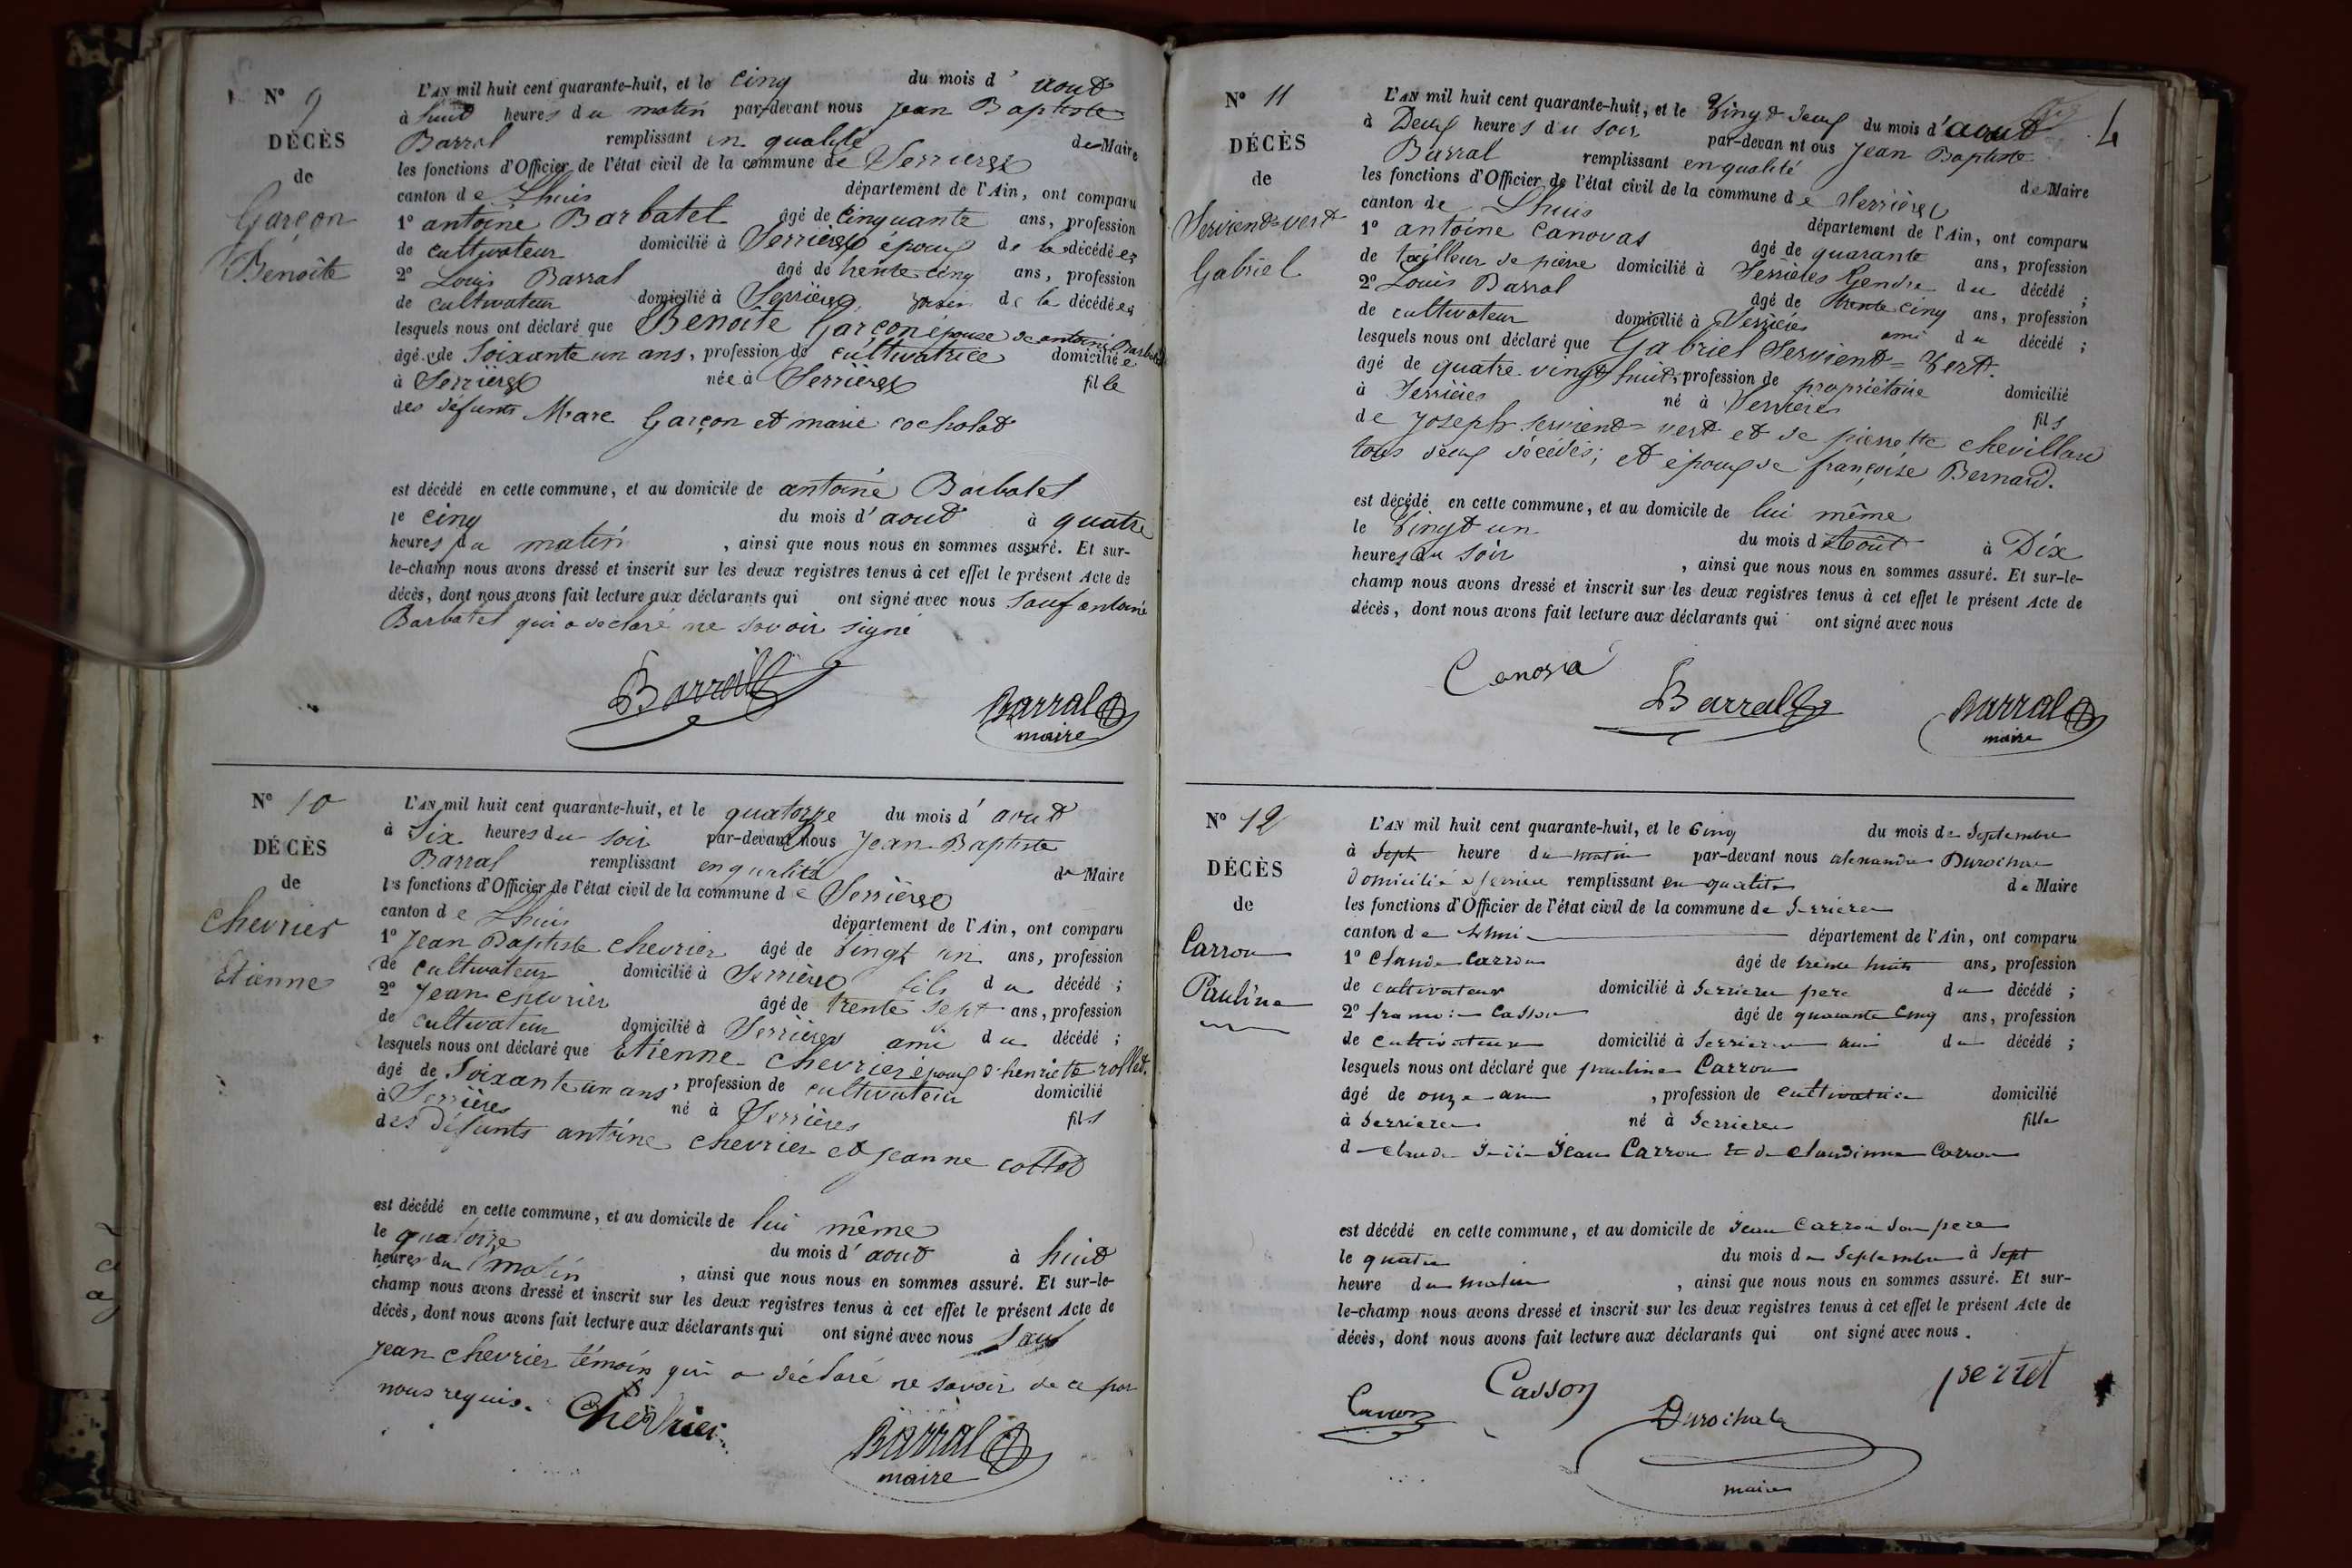 N° 9
DÉCÈS
de
Garçon
Benoîte
L'AN mil huit cent quarante-huit, et le cinq du mois d' aout
à huit heures du matin par-devant nous Jean Baptiste
Barral remplissant en qualité de Maire
les fonctions d'Officier de l'état civil de la commune de Serrières
canton de Lhuis département de l'Ain, ont comparu
1° antoine Barbatel âgé de cinquante ans, profession
de cultivateur domicilié à Serrières époux de la décédées
2° Louis Barral âgé de trente cinq ans, profession
de cultivateur domicilié à Serrières, voisin de la décédées
lesquels nous ont déclaré que Benoîte Garçon épouse de antoine Barbatel
âgée de Soixante un ans, profession de cultivatrice domiciliée
à Serrières née à Serrières fille
des défunts Marc Garçon et marie cocholat
est décédé en cette commune, et au domicile de antoine Barbatel
le cinq du mois d' aout à quatre
heures du matin , ainsi que nous nous en sommes assuré. Et sur-
le-champ nous avons dressé et inscrit sur les deux registres tenus à cet effet le présent Acte de
décès, dont nous avons fait lecture aux déclarants qui ont signé avec nous Sauf antoine
Barbatel qui a déclaré ne savoir signé
Barral
Barral
maire
N° 10
DÉCÈS
de
Chevrier
Etienne
L'AN mil huit cent quarante-huit, et le quatorze du mois d' aout
à Six heures du soir par-devant nous Jean Baptiste
Barral remplissant en qualité de Maire
les fonctions d'Officier de l'état civil de la commune de Serrières
canton de Lhuis département de l'Ain, ont comparu
1° Jean Baptiste Chevrier âgé de vingt un ans, profession
de cultivateur domicilié à Serrières fils du décédé ;
2° Jean Chevrier âgé de trente sept ans, profession
de cultivateur domicilié à Serrières ami du décédé ;
lesquels nous ont déclaré que Etienne Chevrier époux d'henriette rollet.
âgé de Soixante un ans, profession de cultivateur domicilié
à Serrières né à Serrières fils
des défunts antoine Chevrier et Jeanne cottet
est décédé en cette commune, et au domicile de lui même
le quatorze du mois d' aout à huit
heures du matin , ainsi que nous nous en sommes assuré. Et sur-le-
champ nous avons dressé et inscrit sur les deux registres tenus à cet effet le présent Acte de
décès, dont nous avons fait lecture aux déclarants qui ont signé avec nous Sauf
Jean Chevrier témoin qui a déclaré ne savoir de ce par
nous requis.
Chevrier
Barral
maire
4
N° 11
DÉCÈS
de
Servient=vert
Gabriel
L'AN mil huit cent quarante-huit, et le Vingt deux du mois d' aout
à Deux heures du soir par-devan nt ous Jean Baptiste
Barral remplissant en qualité de Maire
les fonctions d'Officier de l'état civil de la commune de Serrières
canton de Lhuis département de l'Ain, ont comparu
1° antoine Canovas âgé de quarante ans, profession
de tailleur de pierre domicilié à Serrières Gendre du décédé ;
2° Louis Barral âgé de trente cinq ans, profession
de cultivateur domicilié à Serrières ami du décédé ;
lesquels nous ont déclaré que Gabriel Servient=Vert.
âgé de quatre vingt huit, profession de propriétaire domicilié
à Serrières né à Serrières fils
de Joseph servient=vert et de pierrette chevillard
tous deux décédés; et époux de françoise Bernard.
est décédé en cette commune, et au domicile de lui même
le Vingt un du mois d Août à Dix
heures du Soir , ainsi que nous nous en sommes assuré. Et sur-le-
champ nous avons dressé et inscrit sur les deux registres tenus à cet effet le présent Acte de
décès, dont nous avons fait lecture aux déclarants qui ont signé avec nous
Canova
Barral
Barral
maire
N° 12
DÉCÈS
de
Carron
Pauline
L'AN mil huit cent quarante-huit, et le Cinq du mois de Septembre
à Sept heure du matin par-devant nous alexandre Durochat
domicilié a serriere remplissant en qualité de Maire
les fonctions d'Officier de l'état civil de la commune de Serrieres
canton de Lhuis département de l'Ain, ont comparu
1° Claude Carron âgé de trente huit ans, profession
de cultivateur domicilié à Serriere pere du décédé ;
2° francois Casson âgé de quarante Cinq ans, profession
de Cultivateur domicilié à Serrieres ami du décédé ;
lesquels nous ont déclaré que pauline Carron
âgé de onze ans , profession de Cultivatrice domicilié
à Serrieres né à Serrieres fille
de claude Jean Carron Et de claudinne Carron
est décédé en cette commune, et au domicile de Jean Carron Son pere
le quatre du mois de Septembre à Sept
heure du matin , ainsi que nous nous en sommes assuré. Et sur-
le-champ nous avons dressé et inscrit sur les deux registres tenus à cet effet le présent Acte de
décès, dont nous avons fait lecture aux déclarants qui ont signé avec nous.
Carron
Casson
Durochat
maire
perret